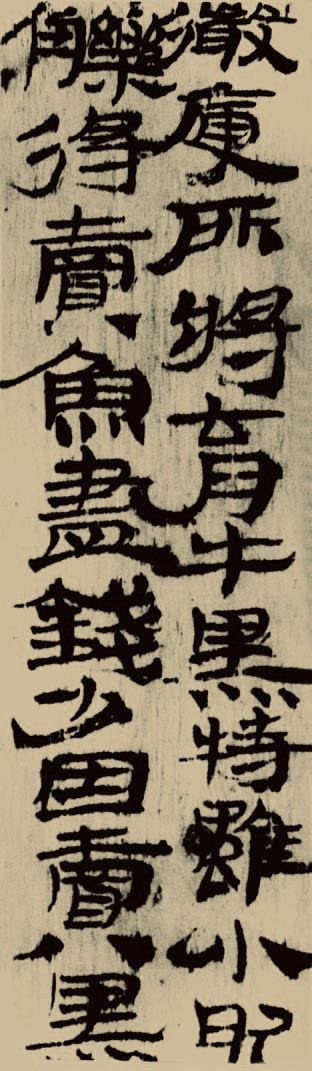 微庾所將育牛黑特雖小肥
觻得賣魚盡錢少因賣黑